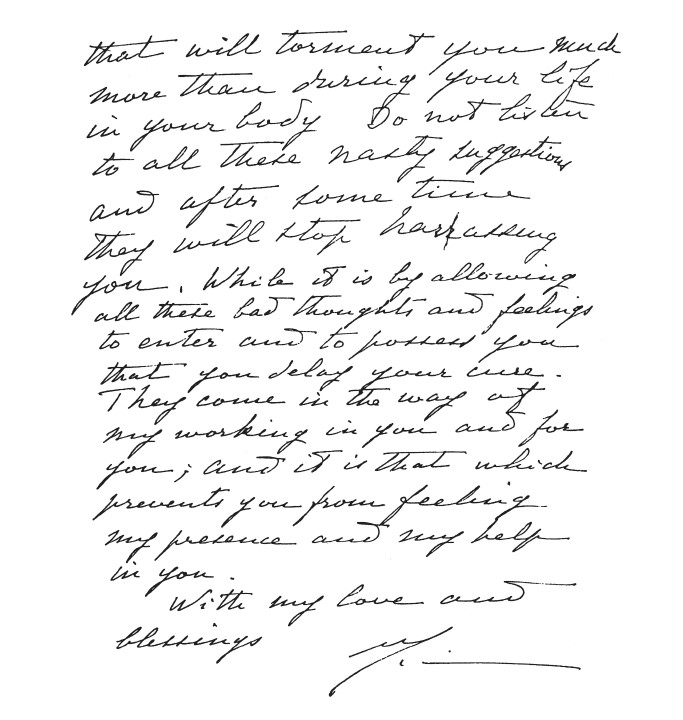 that will torment you much
more than during your life
in your body Do not listen
to all these nasty suggestions
and after some time
they will stop harrassing
you. While it is by allowing
all these bad thoughts and feelings
to enter and to possess you
that you delay your cure.
They come in the way of
my working in you and for
you; and it is that which
prevents you from feeling
my presence and my help
in you.
With my love and
blessings